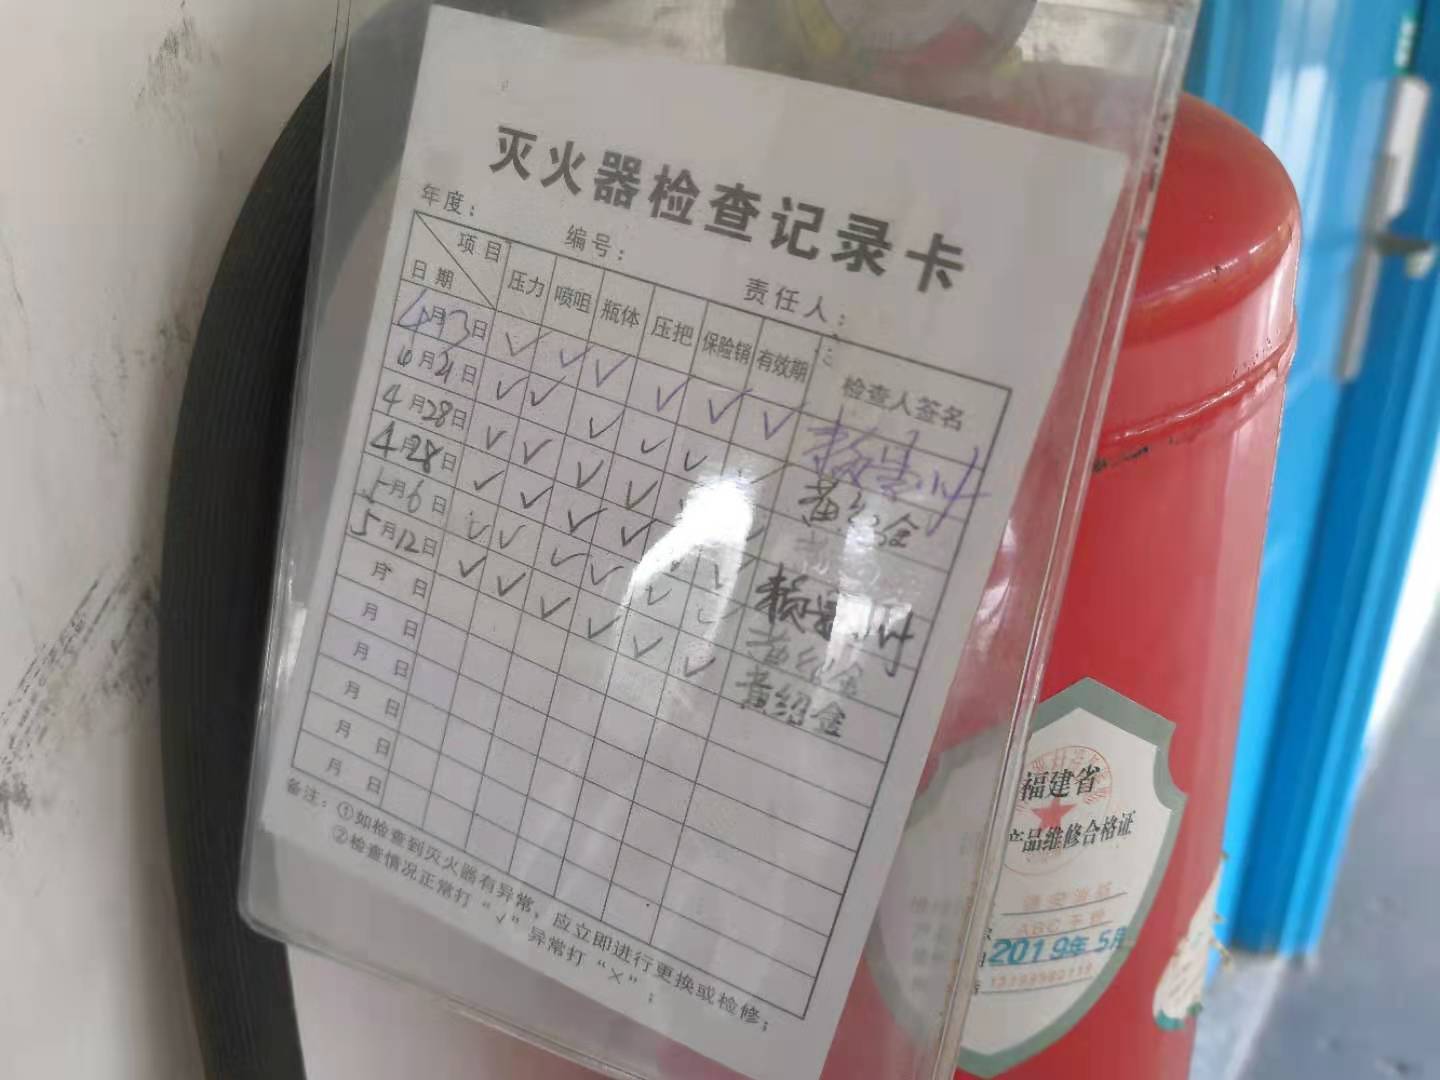 灭火器检查记录卡
年度： 编号： 责任人：
项目 日期 压力 喷咀 瓶体 压把 保险销 有效期 检查人签名
4月3日 ✓ ✓ ✓ ✓ ✓ ✓
4月21日 ✓ ✓ ✓ ✓ ✓ ✓ 黄绍金
4月28日 ✓ ✓ ✓ ✓
4月28日 ✓ ✓ ✓ ✓ ✓
5月6日 ✓ ✓ ✓ ✓ ✓ ✓ 黄绍金
5月12日 ✓ ✓ ✓ ✓ ✓ ✓ 黄绍金
月 日
月 日
月 日
月 日
月 日
月 日
备注：①如检查到灭火器有异常，应立即进行更换或检修；
②检查情况正常打“√”异常打“×”；
福建省
产品维修合格证
ABC干粉
2019年5月